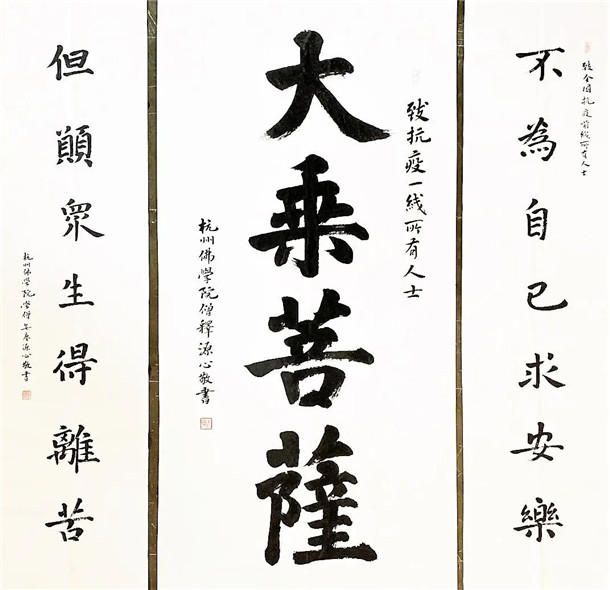 致全国抗疫前线所有人士
不為自己求安樂
致抗疫一线所有人士
大乘菩薩
杭州佛學院僧釋源心敬書
但願眾生得離苦
杭州佛學院学僧源心敬書